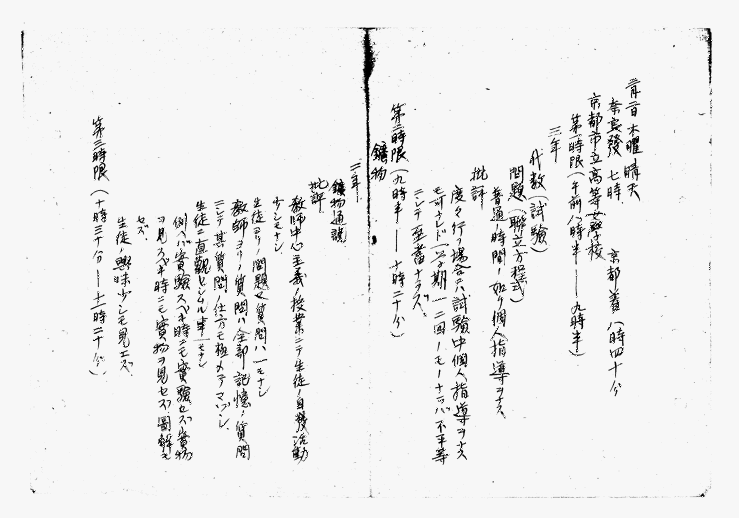 二月二日 木曜 晴天
奈良発 七時 京都着 八時四十分
京都市立高等女学校
第一時限（午前八時半——九時半）
三年
代数（試験）
問題（聯立方程式）
普通ノ時間ノ如ク個人指導ヲナス
批評
度々行フ場合ニハ試験中個人指導ヲナスモ
一学期一二回ノモノナレバ不平等
ニシテ至当ナラズ
第二時限（九時半——十時二十分）
鑛物
二年
鑛物通論
批評
教師中心主義ノ授業ニテ生徒ノ自発活動
少シモナシ
生徒ヨリノ問題又質問ハ一モナシ
教師ヨリノ質問ハ全部記憶ノ質問
ニシテ其質問ノ仕方モ極メテマヅシ
生徒ニ直観セシムル事一モナシ
例ヘバ実験スベキ時ニモ実験セズ 実物
ヲ見スベキ時ニモ実物ヲ見セズ 図解モ
セズ
生徒ノ興味少シモ見エズ
第三時限（十時三十分——十一時二十分）